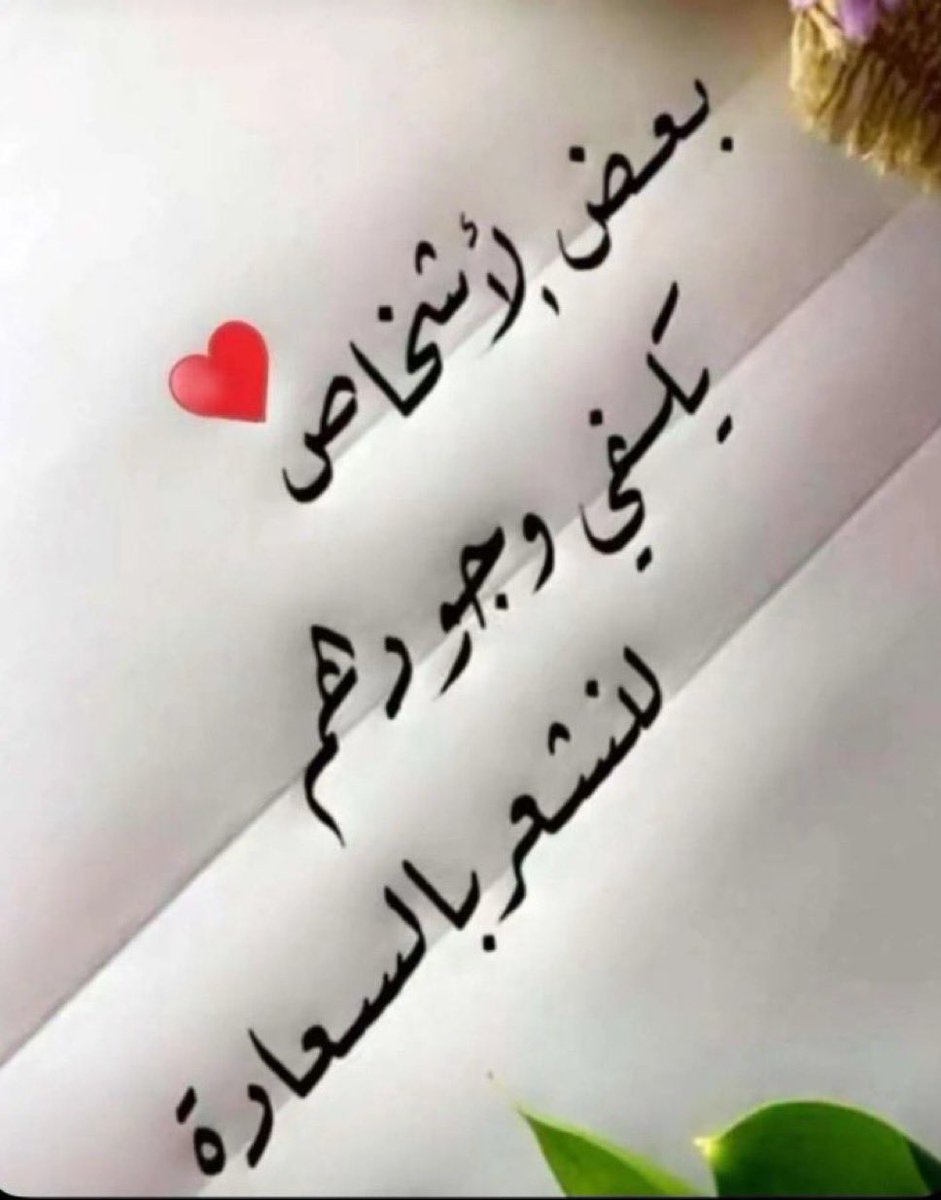 بعض لأشخاص
يكفي وجودهم
لنشعر بالسعادة